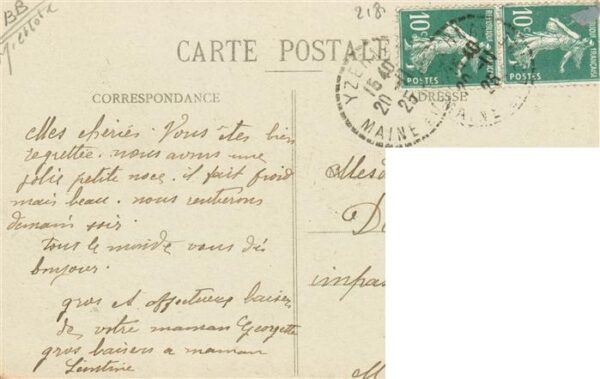 BB
218
CARTE POSTALE
10c
POSTES
10c
POSTES
YZE
15 40
20
25
MAINE
CORRESPONDANCE
ADRESSE
Mes chéries. Vous êtes bien
regrettée. nous avons une
jolie petite noce. il fait froid
mais beau. nous rentrerons
demain soir.
tout le monde vous dis
bonjour.
gros et affectueux baisers
de votre maman Georgette
gros baisers a maman
Léontine
Mes
D
impas
M